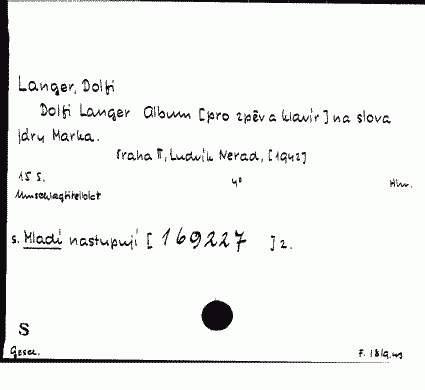 Langer, Dolfi
Dolfi Langer Album [pro zpěv a klavír] na slova
Jdry Marka.
Praha II, Ludvík Nerad, [1942]
15 S. 4°
Umschlagtitelblatt
s. Mladí nastupují [ 169227 ] 2.
S
Gesch.
F. 18/9.43